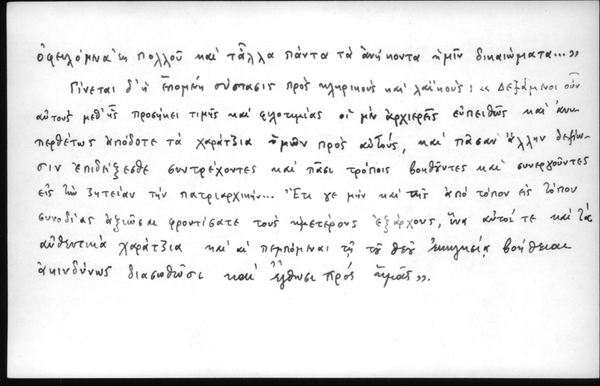 ὀφειλόμενα ἐκ πολλοῦ καὶ τἆλλα πάντα τὰ ἀνήκοντα ἡμῖν δικαιώματα...»
Γίνεται δ' ἡ ἑπομένη σύστασις πρὸς κληρικοὺς καὶ λαϊκούς: «Δεξάμενοι οὖν
αὐτοὺς μεθ' ἧς προσήκει τιμῆς καὶ φιλοτιμίας οἱ μὲν ἀρχιερεῖς εὐπειθῶς καὶ ἀνυ-
περθέτως ἀπόδοτε τὰ χαράτζια ὑμῶν πρὸς αὐτούς, καὶ πᾶσαν ἄλλην δεξίω-
σιν ἐπιδείξεσθε συντρέχοντες καὶ πᾶσι τρόποις βοηθοῦντες καὶ συνεργοῦντες
εἰς τὴν ζητείαν τὴν πατριαρχικήν... Ἔτι γε μὴν καὶ τῆς ἀπὸ τόπον εἰς τόπον
συνοδίας ἀξιῶσαι φροντίσατε τοὺς ἡμετέρους ἐξάρχους, ἵνα αὐτοί τε καὶ τὰ
αὐθεντικὰ χαράτζια καὶ αἱ πεμπόμεναι τῇ τοῦ θεοῦ ἐκκλησίᾳ βοήθειαι
ἀκινδύνως διασωθῶσι καὶ ἔλθωσι πρὸς ἡμᾶς».